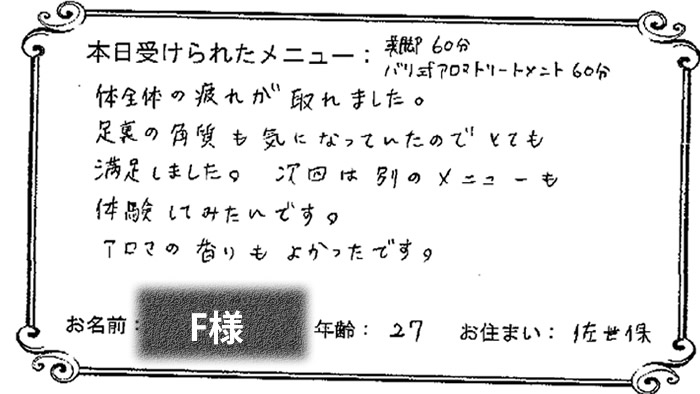 本日受けられたメニュー： 美脚 60分
バリ式アロマトリートメント 60分
体全体の疲れが取れました。
足裏の角質も気になっていたのでとても
満足しました。 次回は別のメニューも
体験してみたいです。
アロマの香りもよかったです。
お名前： F様 年齢： 27 お住まい： 佐世保